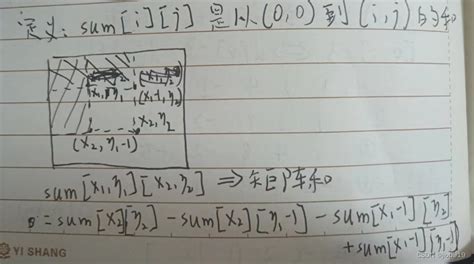 定义: sum[i][j] 是从(0,0)到(i,j)的和
(x₁-1, y₂)
x₂, y₂
(x₂, y₁-1)
sum[x₁, y₁][x₂, y₂] ⇒ 矩阵和
= sum[x₂][y₂] - sum[x₂][y₁-1] - sum[x₁-1][y₂]
+ sum[x₁-1][y₁-1]
YI SHANG